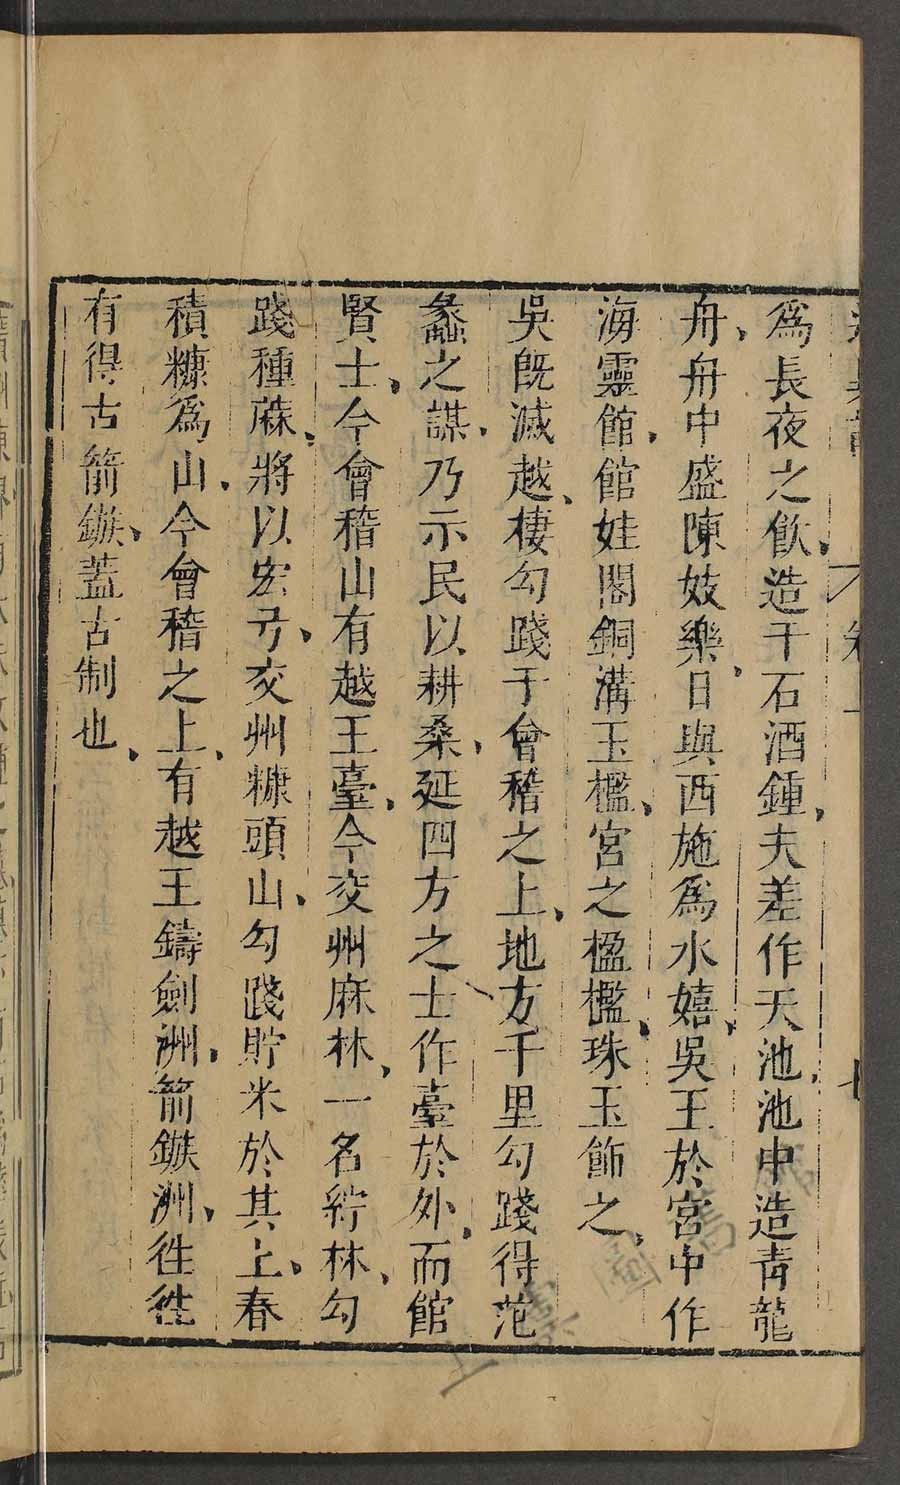 爲長夜之飮造千石酒鍾夫差作天池池中造靑龍
舟舟中盛陳妓樂日與西施爲水嬉吳王於宮中作
海靈館館娃閣銅溝玉檻宮之楹檻珠玉飾之
吳旣滅越棲勾踐于會稽之上地方千里勾踐得范
蠡之謀乃示民以耕桑延四方之士作臺於外而館
賢士今會稽山有越王臺今交州麻林一名紵林勾
踐種蔴將以宏弓交州糠頭山勾踐貯米於其上舂
積糠爲山今會稽之上有越王鑄劍洲箭鏃洲徃徃
有得古箭鏃蓋古制也